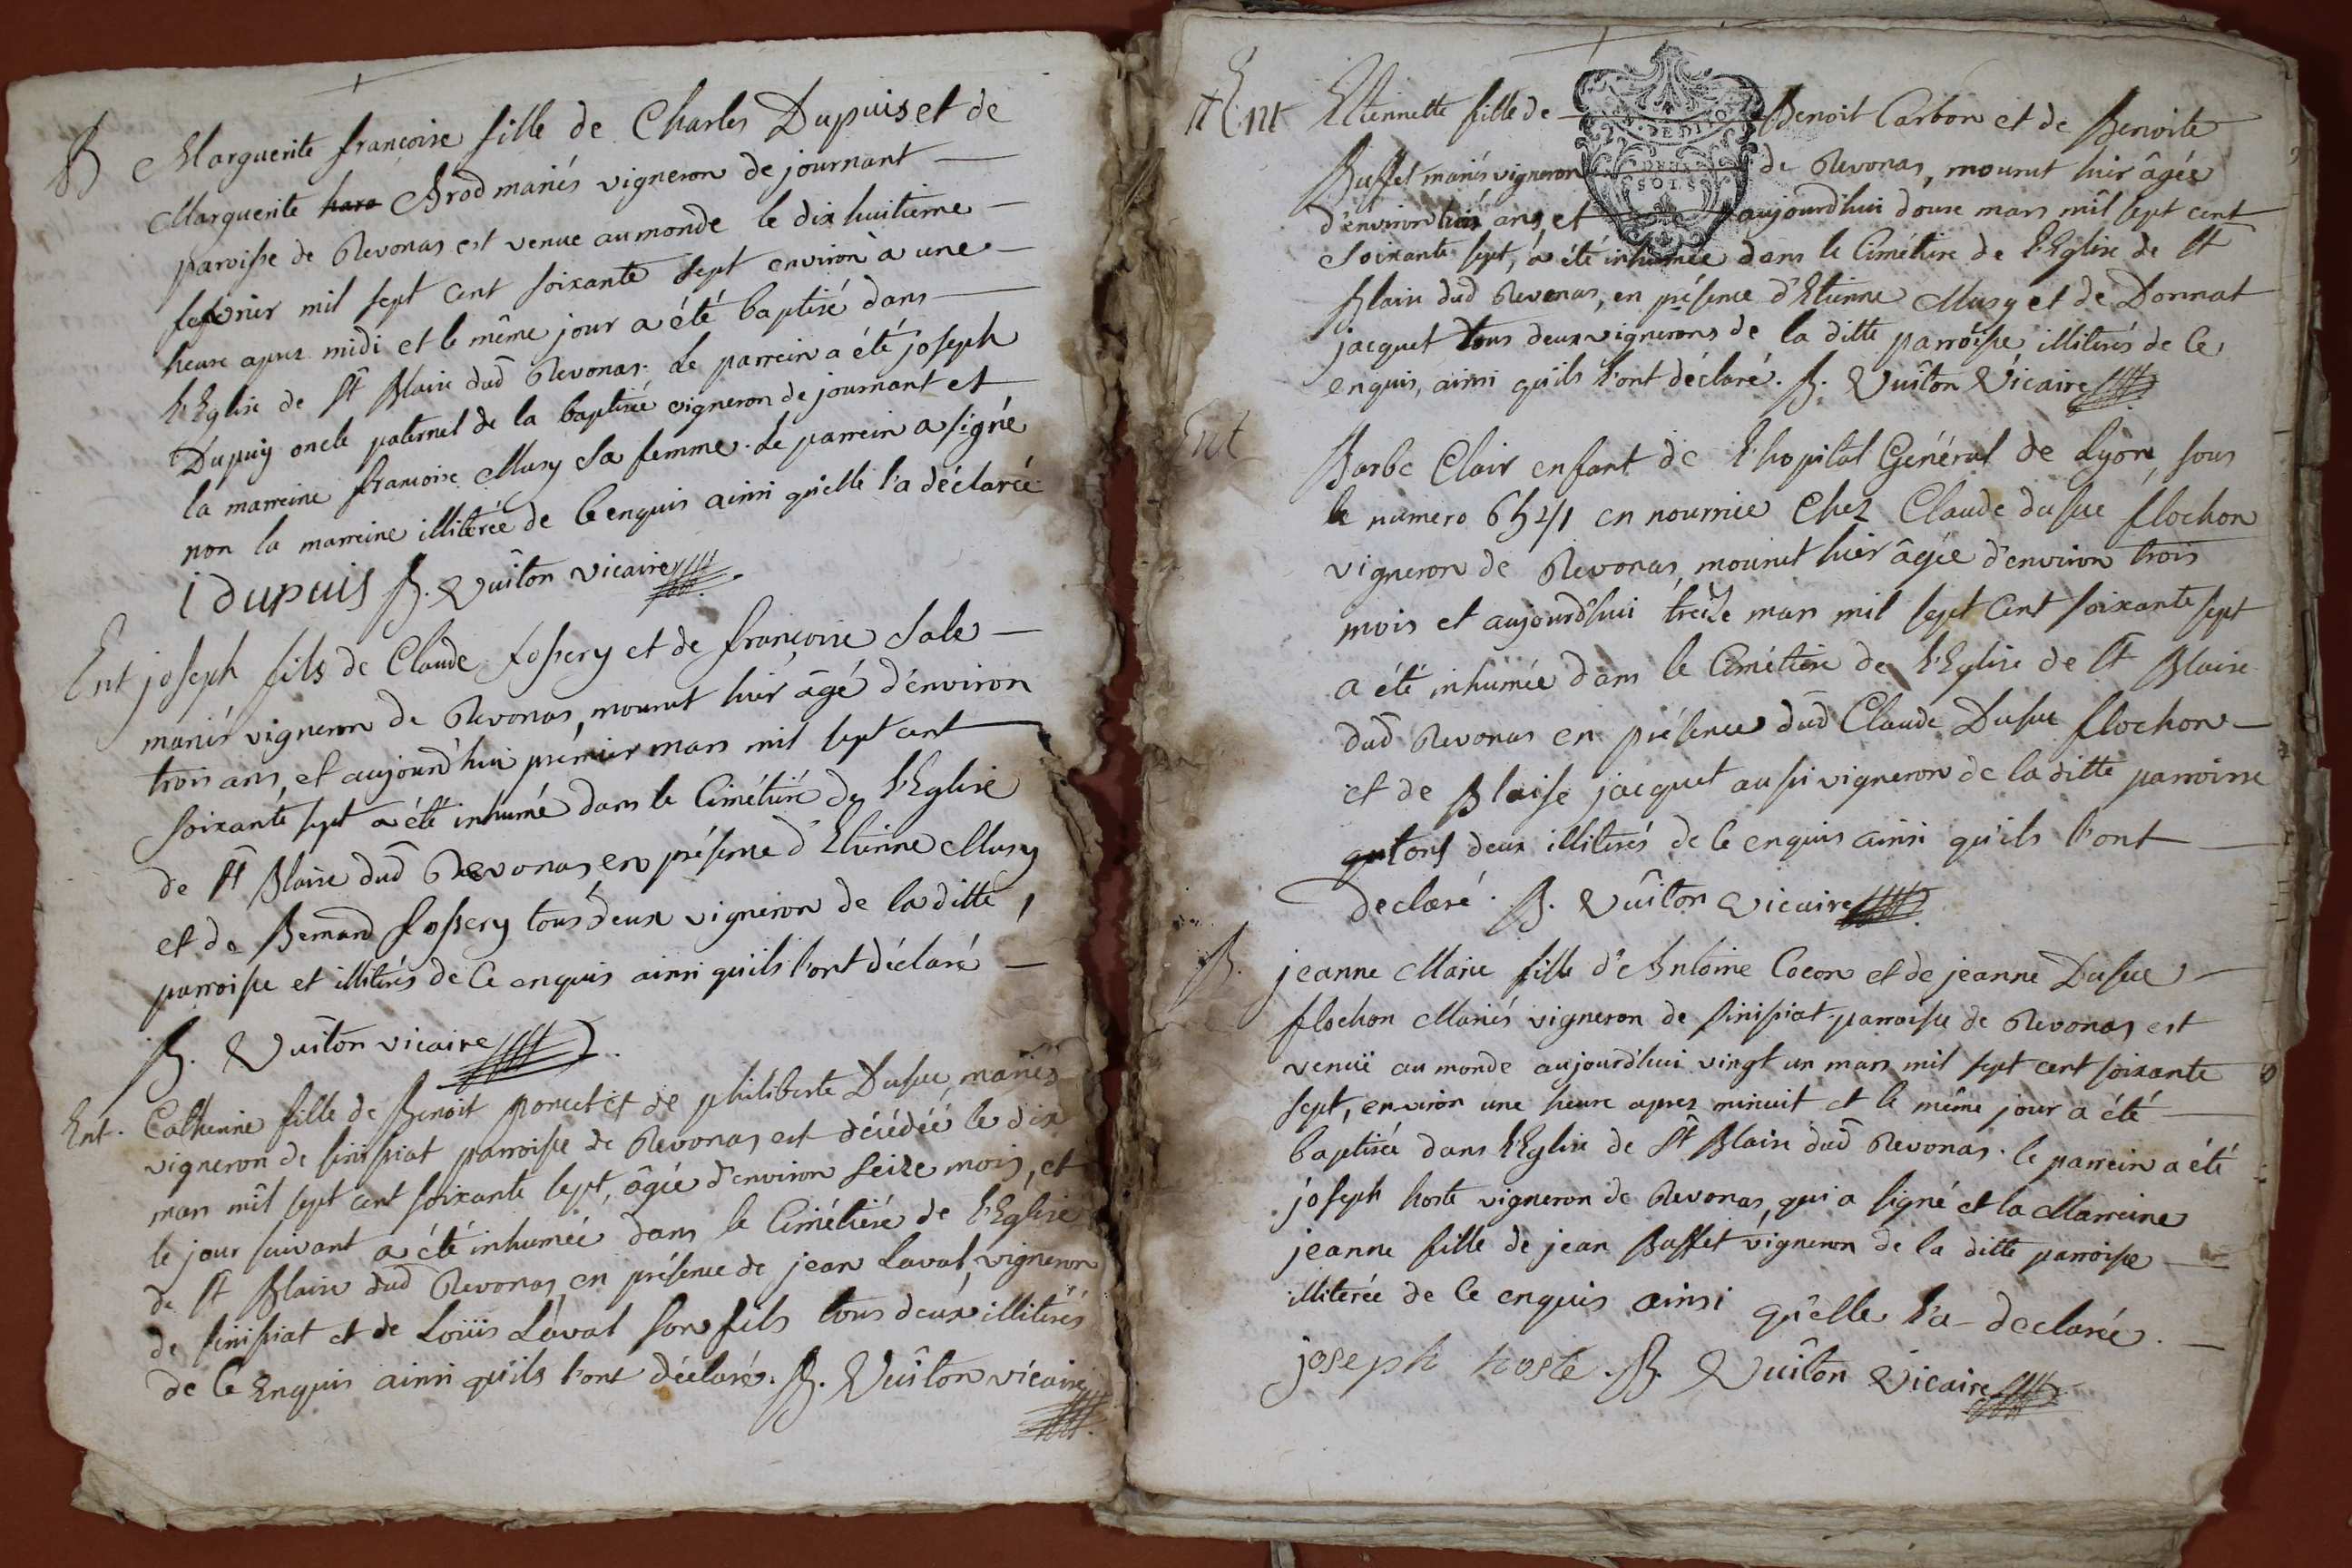 B Marguerite françoise fille de Charles Dupuis et de
Marguerite Brod mariés vigneron de journant
paroisse de Revonas est venue au monde le dix huitieme
mil sept cent soixante sept environ à une
heure apres midi et le même jour a été baptisé dans
l'Eglise de St Blaise dud Revonas. Le parrein a été joseph
Dupuy oncle paternel de la baptisée vigneron de journant et
la marreine francoise Musy sa femme. Le parrein a signé
non la marreine illiterée de Ce enquis ainsi qu'elle l'a déclarée
i dupuis B. Vuiton vicaire
Ent joseph fils de Claude fossery et de françoise Sale
mariés vigneron de Revonas, mourut hier âgé d'environ
trois ans, et aujourd'hui prémier mars mil sept cent
soixante sept a été inhumé dans le Cimétiére de l'Eglise
de St Blaise dud Revonas, en présence d'Etienne Musy
et de Bernard fossery tous deux vigneron de la ditte
parroisse et illitérés de Ce enquis ainsi qu'ils l'ont déclaré
B. Vuiton vicaire
Ent. Catherine fille de Benoit poncet et de philiberte Dusuc, mariés
vigneron de sinissiat parroisse de Revonas est décédée le dix
mars mil sept cent soixante sept, âgée d'environ seize mois, et
le jour suivant a été inhumée dans le Cimétiére de l'Eglise
de St Blaise dud Revonas, en présence de jean Laval, vigneron
de sinissiat et de Loüis Laval son fils tous deux illiterés
de Ce Enquis ainsi qu'ils l'ont déclaré. B. Vuiton vicaire
Ent Etiennette fille de Benoit Carbon et de Benoite
Buffet mariés vigneron de Revonas, mourut hier âgée
d'environ ans, et aujourd'hui douze mars mil sept cent
soixante sept, a été inhumée dans le Cimétiere de l'Eglise de St
Blaise dud Revonas, en présence d'Etienne Musy et de Donnat
jacquet tous deux vignerons de la ditte parroisse illiterés de Ce
enquis, ainsi qu'ils l'ont déclaré. B. Vuiton Vicaire
Ent Barbe Clair enfant de l'hopital Général de Lyon, sous
le numero en nourrice Chez Claude dusuc flochon
vigneron de Revonas, mourut hier âgée d'environ trois
mois et aujourd'hui treize mars mil sept Cent soixante sept
a été inhumée dans le Cimétiere de l'Eglise de St Blaise
dud Revonas en présence dud Claude Dusuc flochon
et de Blaise jacquet aussi vigneron de la ditte parroisse
tous deux illiterés de Ce enquis ainsi qu'ils l'ont
declaré. B. Vuiton vicaire
B. jeanne Marie fille d'Antoine Cocon et de jeanne Dusuc
flochon Mariés vigneron de sinissiat parroisse de Revonas, est
venuë au monde aujourd'hui vingt un mars mil sept cent soixante
sept, environ une heure aprez minuit et le même jour a été
baptisée dans l'Eglise de St Blaise dud Revonas. le parrein a été
joseph hoste vigneron de Revonas, qui a signé et la Marreine
jeanne fille de jean Buffet vigneron de la ditte parroisse
illiterée de Ce enquis ainsi qu'elle l'a declarée.
joseph hoste. B. Vuiton Vicaire